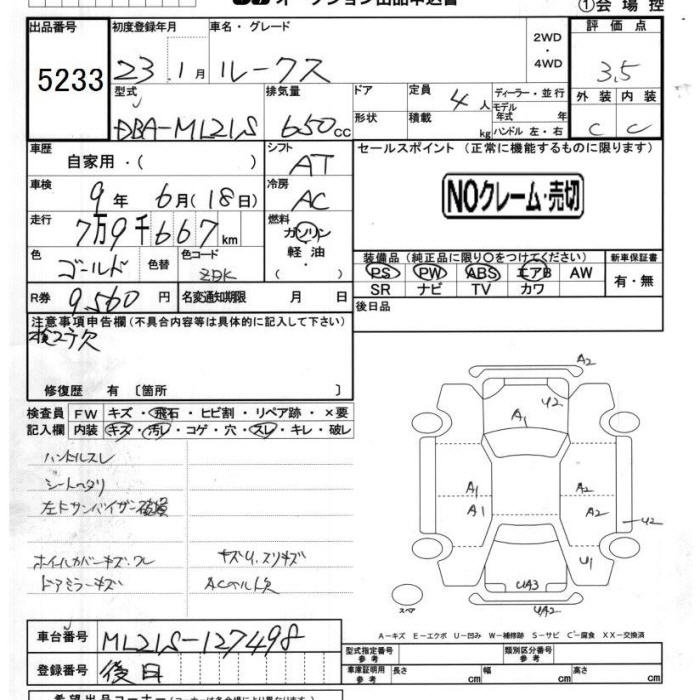 ①会場控
出品番号
5233
初度登録年月
23.1月
車名・グレード
ルークス
2WD
・
4WD
評価点
3.5
外装 内装
C C
型式
DBA-ML21S
排気量
650cc
ドア
形状
定員
4人
積載
kg
ディーラー・並行
モデル
年式 年
ハンドル 左・右
車歴
自家用・( )
シフト
AT
セールスポイント (正常に機能するものに限ります)
NOクレーム・売切
車検
9年 6月(18日)
冷房
AC
走行
7万9千667km
燃料
ガソリン
軽油
( )
色
ゴールド
色替
色コード
ZDK
装備品(純正品に限り○をつけてください)
PS PW ABS エアB AW
SR ナビ TV カワ
新車保証書
有・無
R券
9,560円
名変通知期限 月 日
後日品
注意事項申告欄(不具合内容等は具体的に記入して下さい)
修復歴 有 〔箇所 〕
検査員
記入欄
FW キズ・飛石・ヒビ割・リペア跡・×要
内装 キズ・汚レ・コゲ・穴・スレ・キレ・破レ
ハンドルスレ
シートヘタリ
左ドサンバイザー破損
ホイルカバーキズ、ワレ
キズU、スリキズ
ドアミラーキズ
ACベルト欠
A2
U2
A1
A1
A1
A2
A2
U2
U1
UA3
UA2
スペア
A-キズ E-エクボ U-凹み W-補修跡 S-サビ C-腐食 XX-交換済
車台番号
ML21S-127498
登録番号
後日
型式指定番号
参考
類別区分番号
参考
車庫証明用
参考
長さ cm 幅 cm 高さ cm